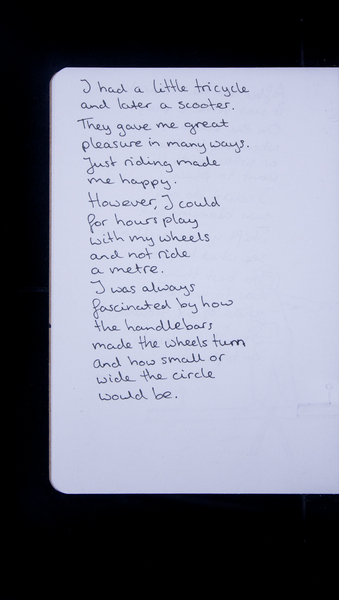 I had a little tricycle
and later a scooter.
They gave me great
pleasure in many ways.
Just riding made
me happy.
However, I could
for hours play
with my wheels
and not ride
a metre.
I was always
fascinated by how
the handlebars
made the wheels turn
and how small or
wide the circle
would be.